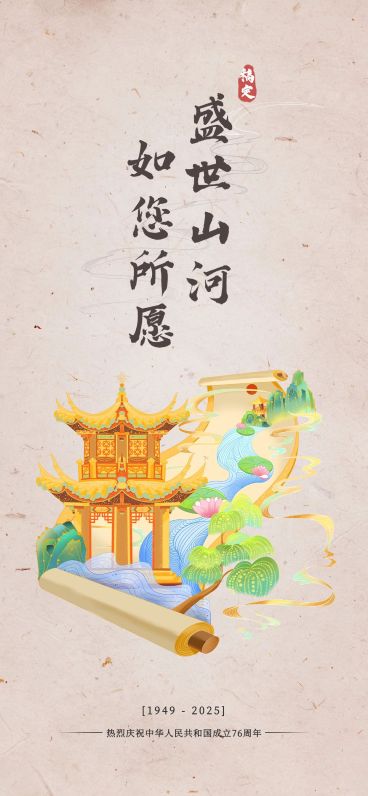 搞定
盛世山河
如您所愿
[1949 - 2025]
热烈庆祝中华人民共和国成立76周年